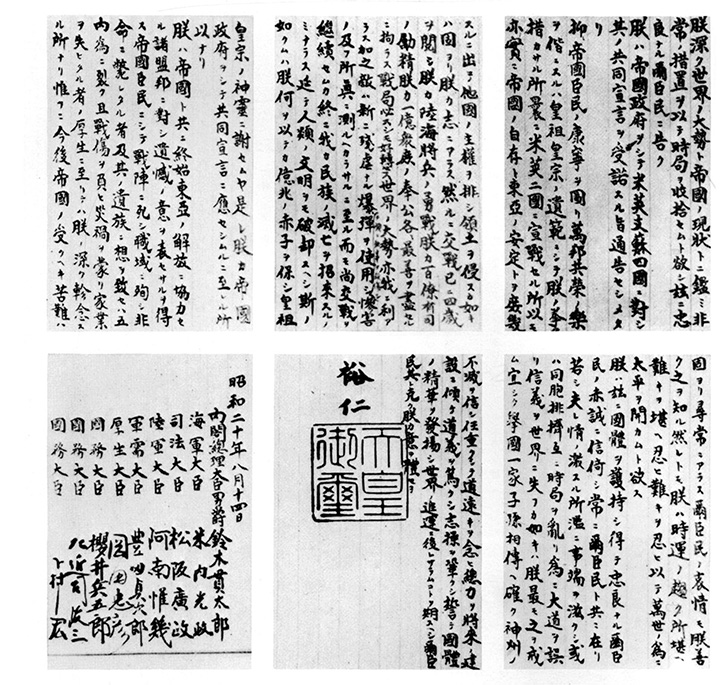 朕深ク世界ノ大勢ト帝國ノ現状トニ鑑ミ非
常ノ措置ヲ以テ時局ヲ收拾セムト欲シ茲ニ忠
良ナル爾臣民ニ告ク
朕ハ帝國政府ヲシテ米英支蘇四國ニ對シ
其ノ共同宣言ヲ受諾スル旨通告セシメタ
リ
抑〻帝國臣民ノ康寧ヲ圖リ萬邦共榮ノ樂
ヲ偕ニスルハ皇祖皇宗ノ遺範ニシテ朕ノ拳〻
措カサル所曩ニ米英二國ニ宣戰セル所以モ
亦實ニ帝國ノ自存ト東亞ノ安定トヲ庶幾
スルニ出テ他國ノ主權ヲ排シ領土ヲ侵スカ如キ
ハ固ヨリ朕カ志ニアラス然ルニ交戰已ニ四歳
ヲ閲シ朕カ陸海將兵ノ勇戰朕カ百僚有司
ノ勵精朕カ一億衆庶ノ奉公各〻最善ヲ盡セル
ニ拘ラス戰局必スシモ好轉セス世界ノ大勢亦我ニ利ア
ラス加之敵ハ新ニ殘虐ナル爆彈ヲ使用シ慘害
ノ及フ所眞ニ測ルヘカラサルニ至ル而モ尚交戰ヲ
繼續セムカ終ニ我カ民族ノ滅亡ヲ招來スルノ
ミナラス延テ人類ノ文明ヲモ破却スヘシ斯ノ
如クムハ朕何ヲ以テカ億兆ノ赤子ヲ保シ皇祖
皇宗ノ神靈ニ謝セムヤ是レ朕カ帝國
政府ヲシテ共同宣言ニ應セシムルニ至レル所
以ナリ
朕ハ帝國ト共ニ終始東亞ノ解放ニ協力セ
ル諸盟邦ニ對シ遺憾ノ意ヲ表セサルヲ得
ス帝國臣民ニシテ戰陣ニ死シ職域ニ殉シ非
命ニ斃レタル者及其ノ遺族ニ想ヲ致セハ五
内爲ニ裂ク且戰傷ヲ負ヒ災禍ヲ蒙リ家業
ヲ失ヒタル者ノ厚生ニ至リテハ朕ノ深ク軫念ス
ル所ナリ惟フニ今後帝國ノ受クヘキ苦難ハ
固ヨリ尋常ニアラス爾臣民ノ衷情モ朕善
ク之ヲ知ル然レトモ朕ハ時運ノ趨ク所堪ヘ
難キヲ堪ヘ忍ヒ難キヲ忍ヒ以テ萬世ノ爲ニ
太平ヲ開カムト欲ス
朕ハ茲ニ國體ヲ護持シ得テ忠良ナル爾臣
民ノ赤誠ニ信倚シ常ニ爾臣民ト共ニ在リ
若シ夫レ情ノ激スル所濫ニ事端ヲ滋クシ或
ハ同胞排擠互ニ時局ヲ亂リ爲ニ大道ヲ誤
リ信義ヲ世界ニ失フカ如キハ朕最モ之ヲ戒
ム宜シク擧國一家子孫相傳ヘ確ク神州ノ
不滅ヲ信シ任重クシテ道遠キヲ念ヒ總力ヲ將來ノ建
設ニ傾ケ道義ヲ篤クシ志操ヲ鞏クシ誓テ國體
ノ精華ヲ發揚シ世界ノ進運ニ後レサラムコトヲ期スヘシ爾臣
民其レ克ク朕カ意ヲ體セヨ
裕仁
天皇
御璽
昭和二十年八月十四日
内閣總理大臣男爵 鈴木貫太郎
海軍大臣 米内光政
司法大臣 松阪廣政
陸軍大臣 阿南惟幾
軍需大臣 豊田貞次郎
厚生大臣 岡田忠彦
國務大臣 櫻井兵五郎
國務大臣 左近司政三
國務大臣 下村宏